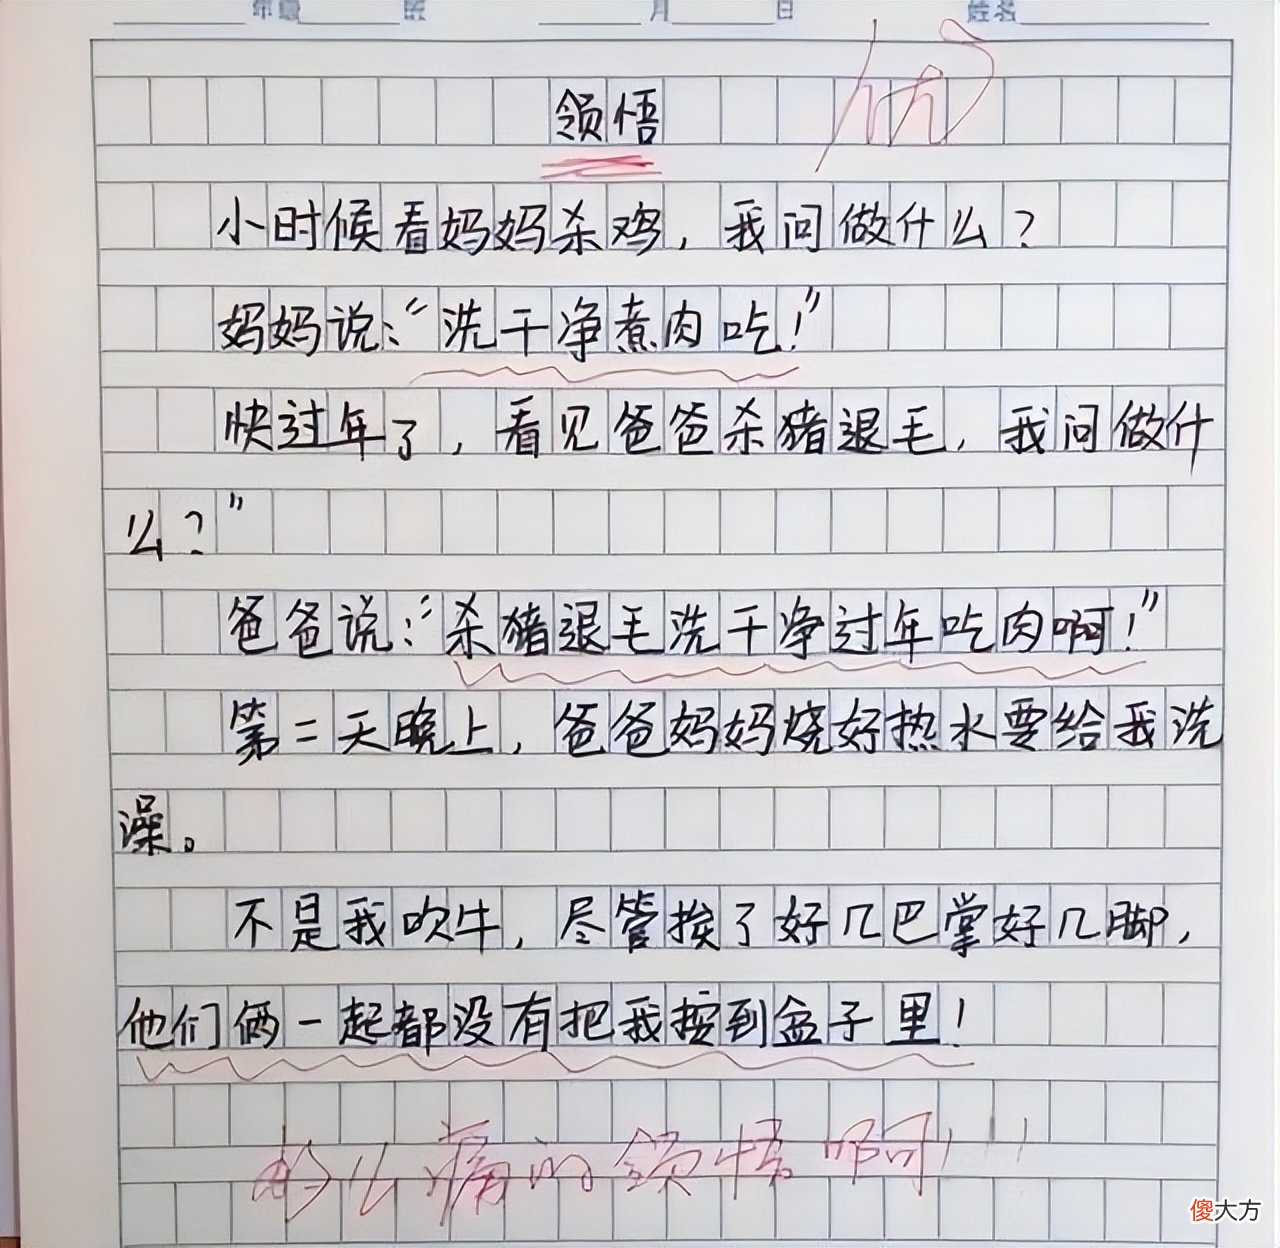 年级 班 月 日 姓名
优
领悟
小时候看妈妈杀鸡，我问做什么？
妈妈说：“洗干净煮肉吃！”
快过年了，看见爸爸杀猪退毛，我问做什
么？”
爸爸说：“杀猪退毛洗干净过年吃肉啊！”
第二天晚上，爸爸妈妈烧好热水要给我洗
澡。
不是我吹牛，尽管挨了好几巴掌好几脚，
他们俩一起都没有把我按到盆子里！
多么痛的领悟啊！！！
傻大方